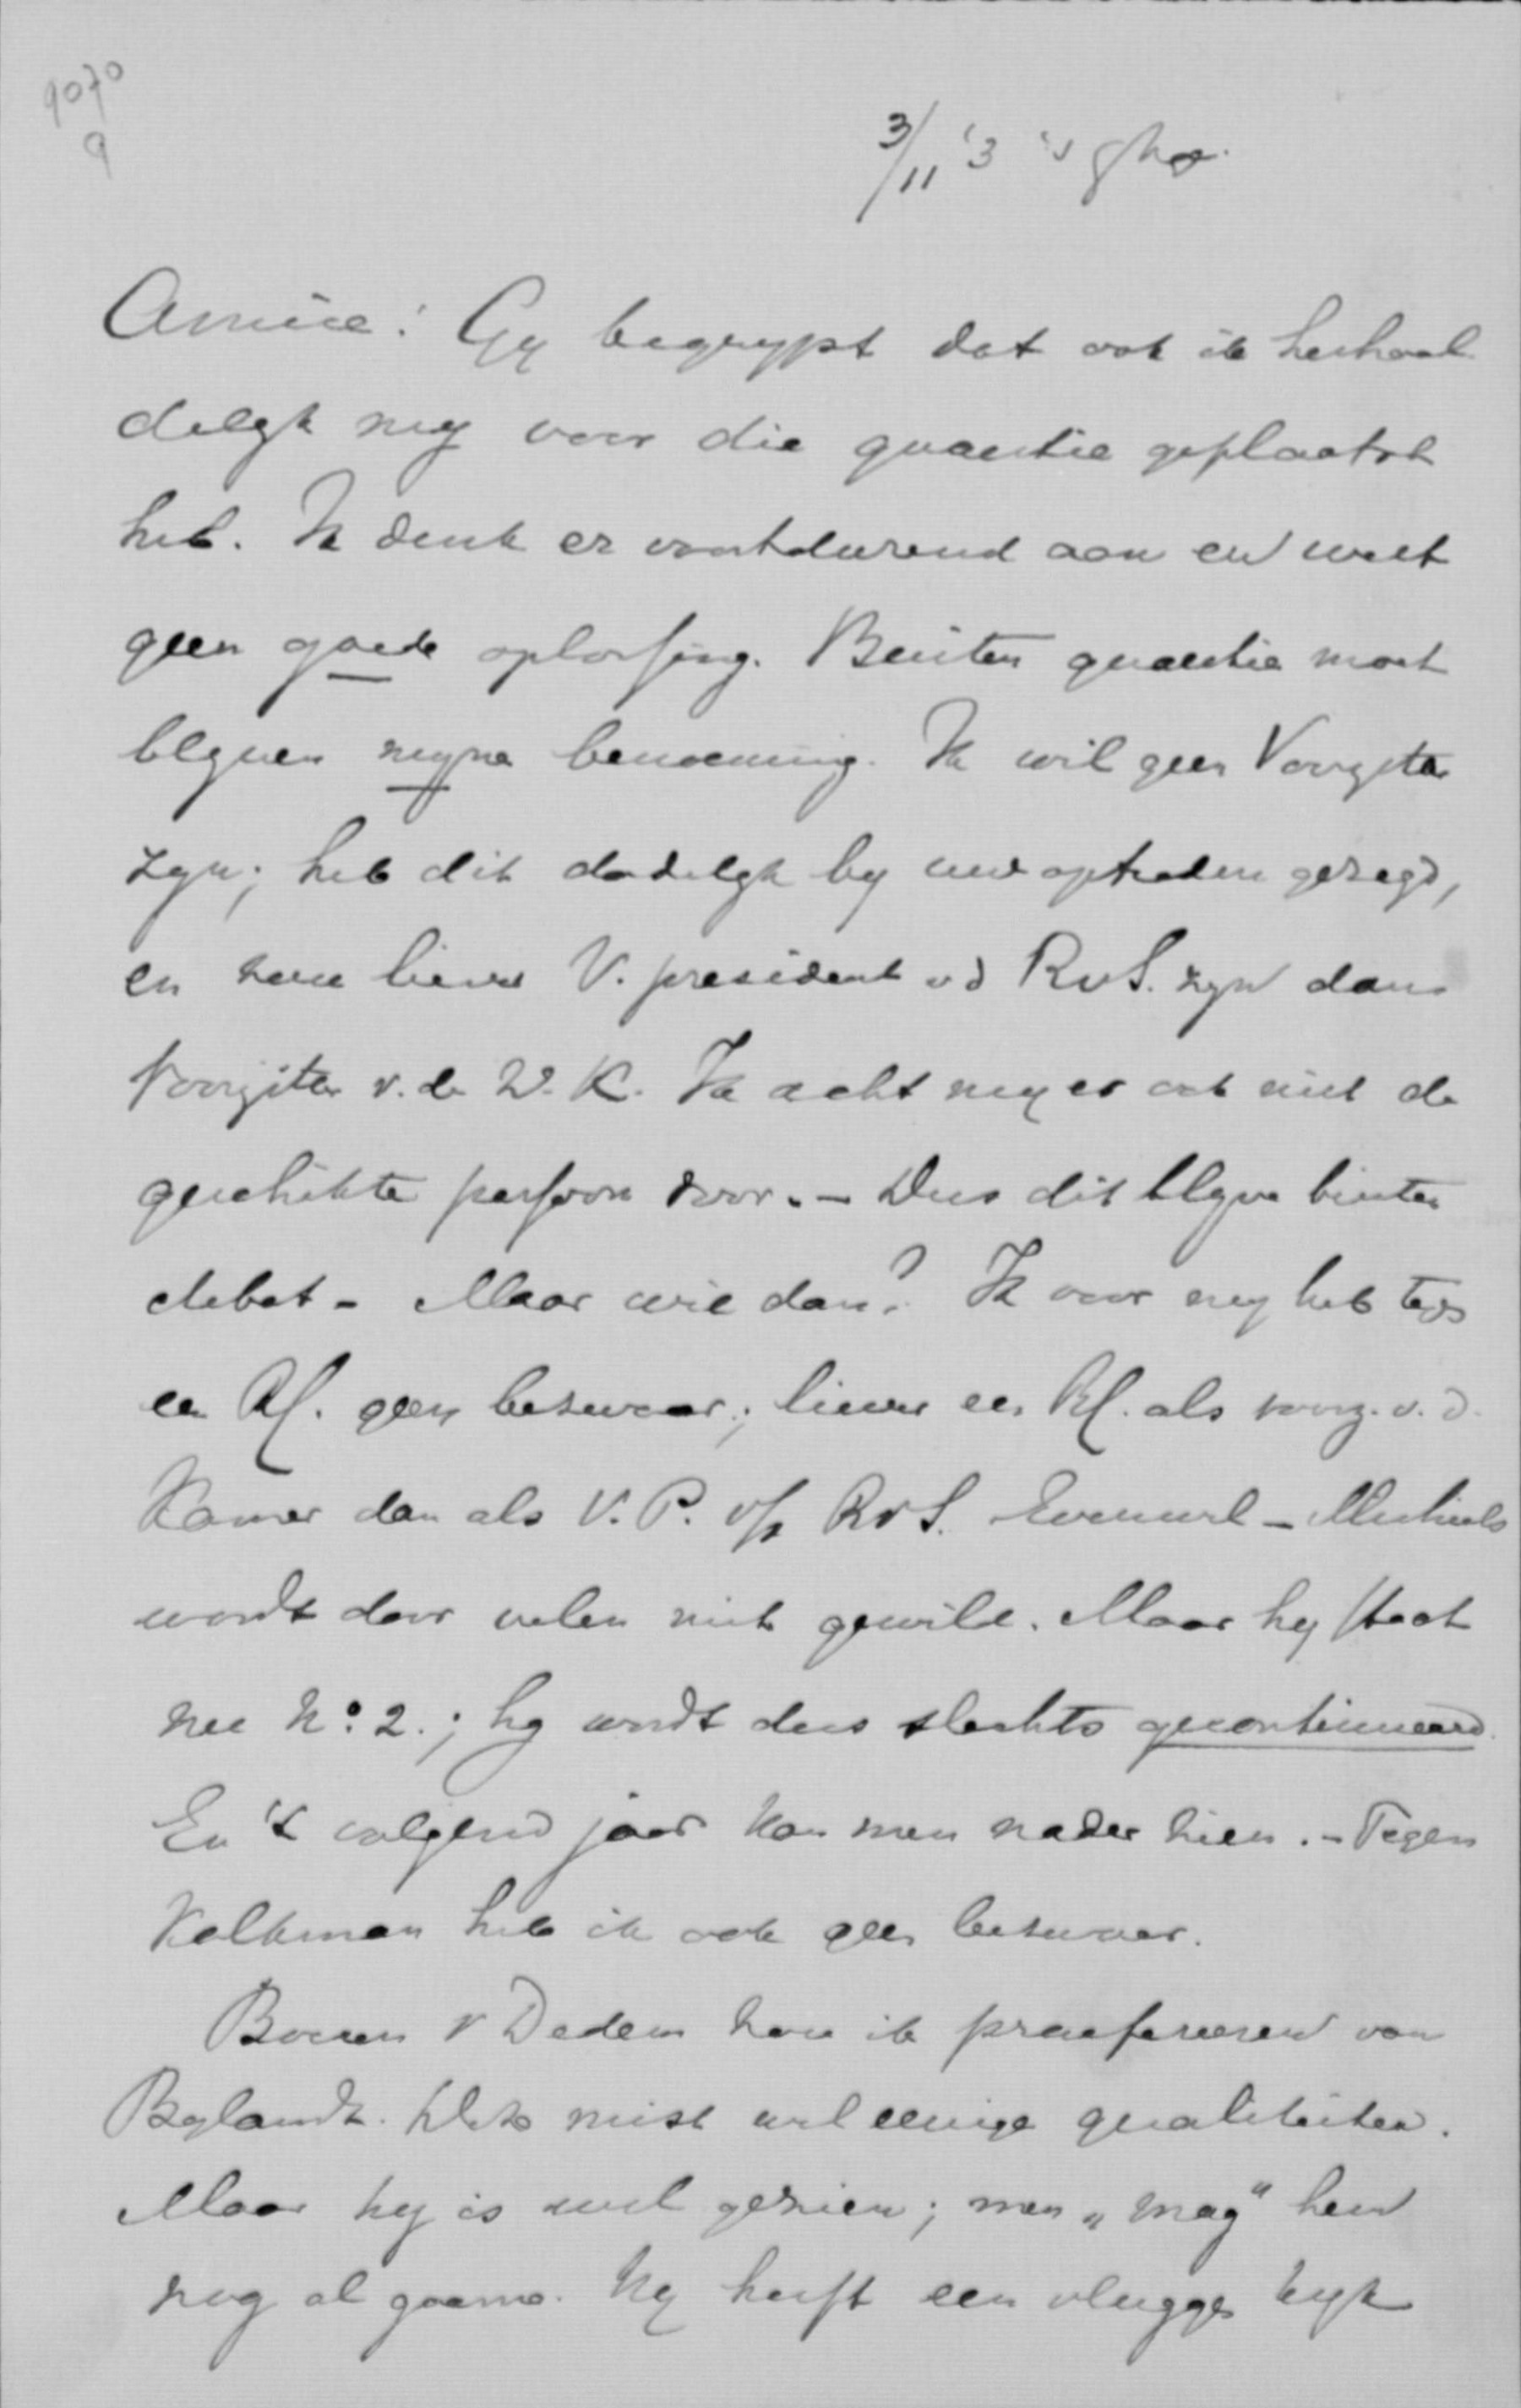 9070
9
3/11 '3 's Ghge.
Amice! Gy begrypt dat ook ik herhaal
delyk my voor die quaestie geplaatst
heb. Ik denk er voortdurend aan en weet
geen goede oplossing. Buiten quaestie moet
blyven myne benoeming. Ik wil geen Voorzitter
zyn; heb dit dadelyk by uw optreden gezegd,
en zou liever V. president v d RvS. zyn dan
Voorzitter v. de 2e K. Ik acht my er ook niet de
geschikte persoon voor. - Dus dit blyve buiten
debat - Maar wie dan? Ik voor my heb teg
een Rk. geen bezwaar; liever een Rk. als voorz. v. d.
Kamer dan als V. P. v/d RvS. Eventueel - Michiels
wordt door velen niet gewild. Maar hy staat
nu No. 2.; hy wordt dus slechts gecontinueerd.
En 't volgend jaar kan men nader zien. - Tegen
Kolkman heb ik ook geen bezwaar.
Boven v Dedem zou ik praefereeren van
Bylandt. Deze mist wel eenige qualiteiten.
Maar hy is wel gezien; men „mag" hem
nog al gaarne. Hy heeft een vlugge kyk